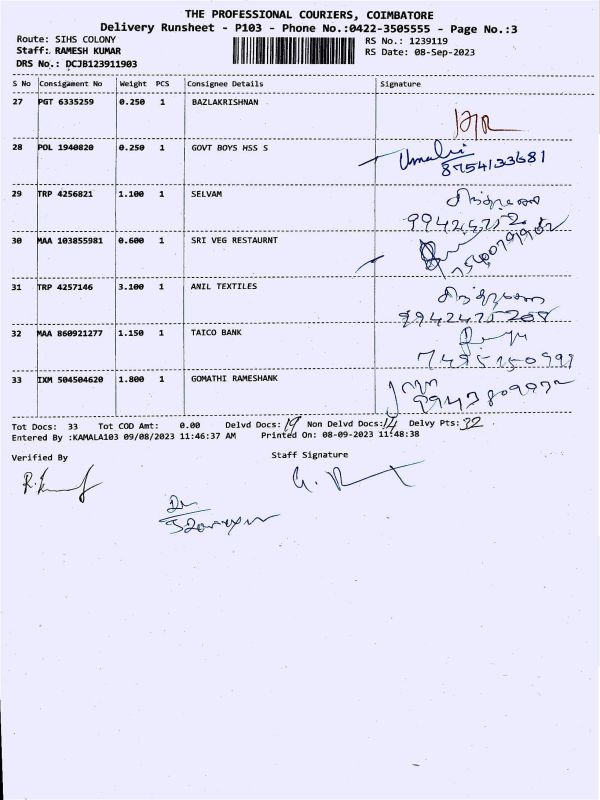 THE PROFESSIONAL COURIERS, COIMBATORE
Delivery Runsheet - P103 - Phone No.:0422-3505555 - Page No.:3
Route: SIHS COLONY
RS No.: 1239119
Staff: RAMESH KUMAR
RS Date: 08-Sep-2023
DRS No.: DCJB123911903
S No Consignment No Weight PCS Consignee Details Signature
27 PGT 6335259 0.250 1 BAZLAKRISHNAN
28 POL 1940820 0.250 1 GOVT BOYS HSS S
8754133681
29 TRP 4256821 1.100 1 SELVAM
30 MAA 103855981 0.600 1 SRI VEG RESTAURNT
31 TRP 4257146 3.100 1 ANIL TEXTILES
32 MAA 860921277 1.150 1 TAICO BANK
33 IXM 504504620 1.800 1 GOMATHI RAMESHANK
Tot Docs: 33 Tot COD Amt: 0.00 Delvd Docs: 19 Non Delvd Docs: 14 Delvy Pts:
Entered By :KAMALA103 09/08/2023 11:46:37 AM Printed On: 08-09-2023 11:48:38
Verified By Staff Signature